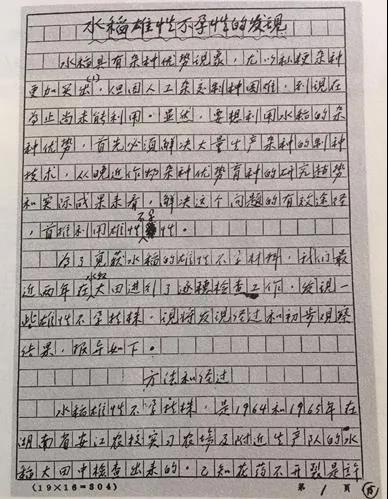 水稻雄性不孕性的发现
水稻具有杂种优势现象，尤以籼粳杂种
更加突出(1)，但因人工杂交制种困难，到现在
为止尚未能利用。显然，要想利用水稻的杂
种优势，首先必须解决大量生产杂种的制种
技术，从晚近作物杂种优势育种的研究趋势
和实际成果来看，解决这个问题的有效途径，
首推利用雄性不孕性。
为了获得水稻的雄性不孕材料，我们最
近两年在水稻大田进行了逐穗检查工作，发现一
些雄性不孕植株，现将发现经过和初步观察
结果，报导如下。
方法和经过
水稻雄性不孕植株，是1964和1965年在
湖南省安江农校实习农场及附近生产队的水
稻大田中检查出来的。已知花药不开裂是许
(19×16=304) 第 1 页